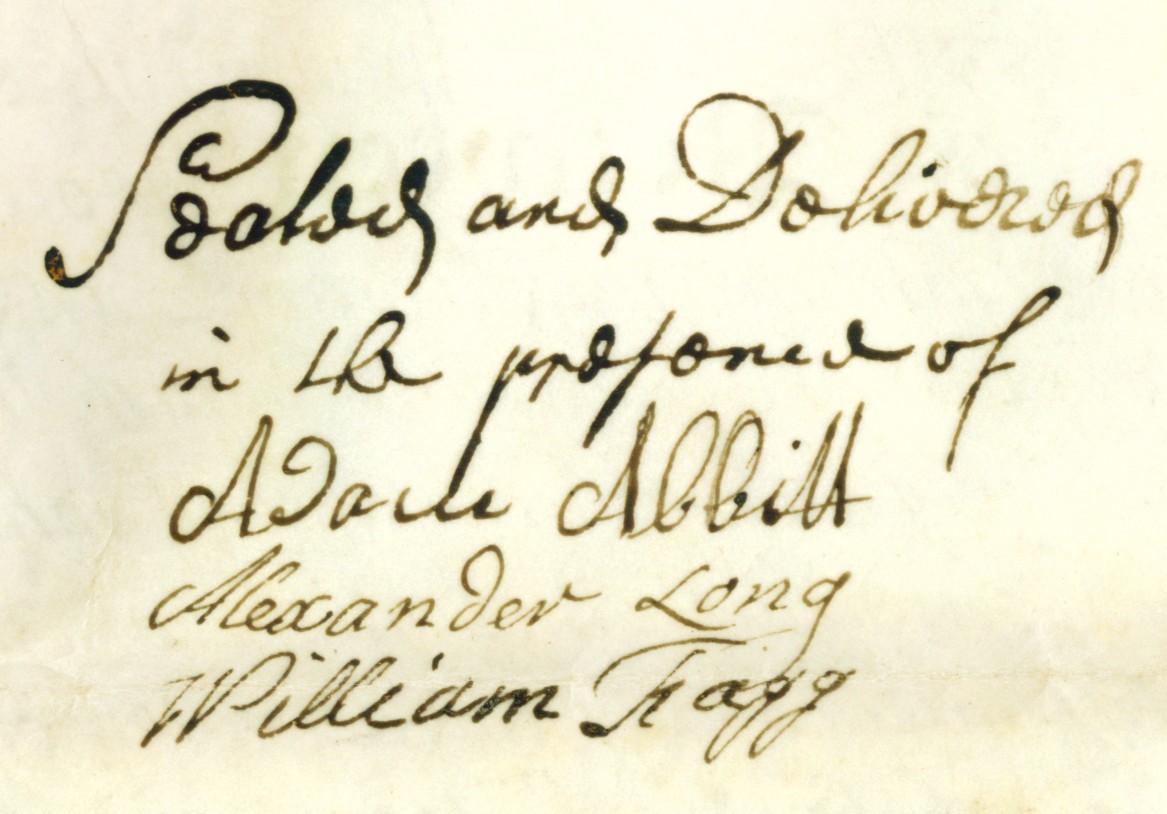 Sealed and Delivered
in the presence of
Adam Abbitt
Alexander Long
William Fagg